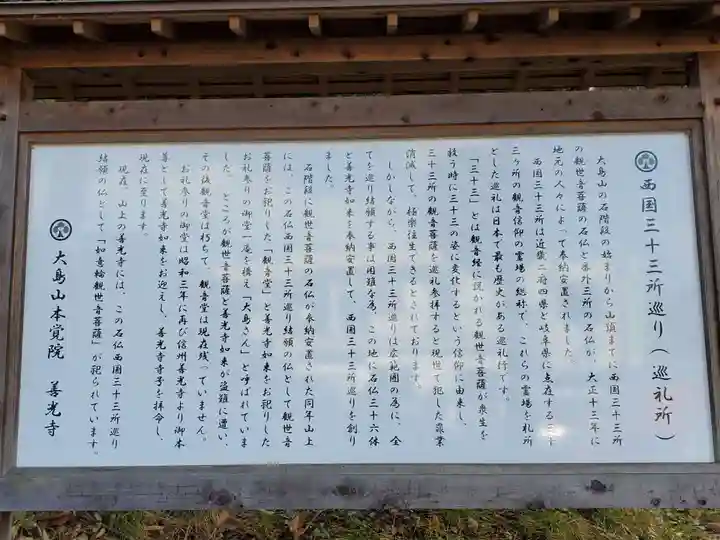 西国三十三所巡り（巡礼所）
大島山の石階段の始まりから山頂までに西国三十三所
の観世音菩薩の石仏と番外三所の石仏が、大正十三年に
地元の人々によって奉納安置されました。
西国三十三所は近畿二府四県と岐阜県に点在する三十
三ヶ所の観音信仰の霊場の総称で、これらの霊場を札所
とした巡礼は日本で最も歴史がある巡礼行です。
「三十三」とは観音経に説かれる観世音菩薩が衆生を
救う時に三十三の姿に変化するという信仰に由来し、
三十三所の観音菩薩を巡礼参拝すると現世で犯した罪業
消滅して、極楽往生できるとされております。
しかしながら、西国三十三所巡りは広範囲の為に、全
てを巡り結願する事は困難な為、この地に石仏三十六体
と善光寺如来を奉納安置して、西国三十三所巡りを創り
ました。
石階段に観世音菩薩の石仏が奉納安置された同年山上
には、この石仏西国三十三所巡り結願の仏として観世音
菩薩をお祀りした「観音堂」と善光寺如来をお祀りした
お礼参りの御堂一庵を構え「大島さん」と呼ばれていま
した。ところが観世音菩薩と善光寺如来が盗難に遭い、
その後観音堂は朽ちて、観音堂は現在残っていません。
お礼参りの御堂は昭和三年に再び信州善光寺より御本
善として善光寺如来をお迎えし、善光寺寺号を拝命し、
現在に至ります。
現在、山上の善光寺には、この石仏西国三十三所巡り
結願の仏として「如意輪観世音菩薩」が祀られています。
大島山本覚院 善光寺